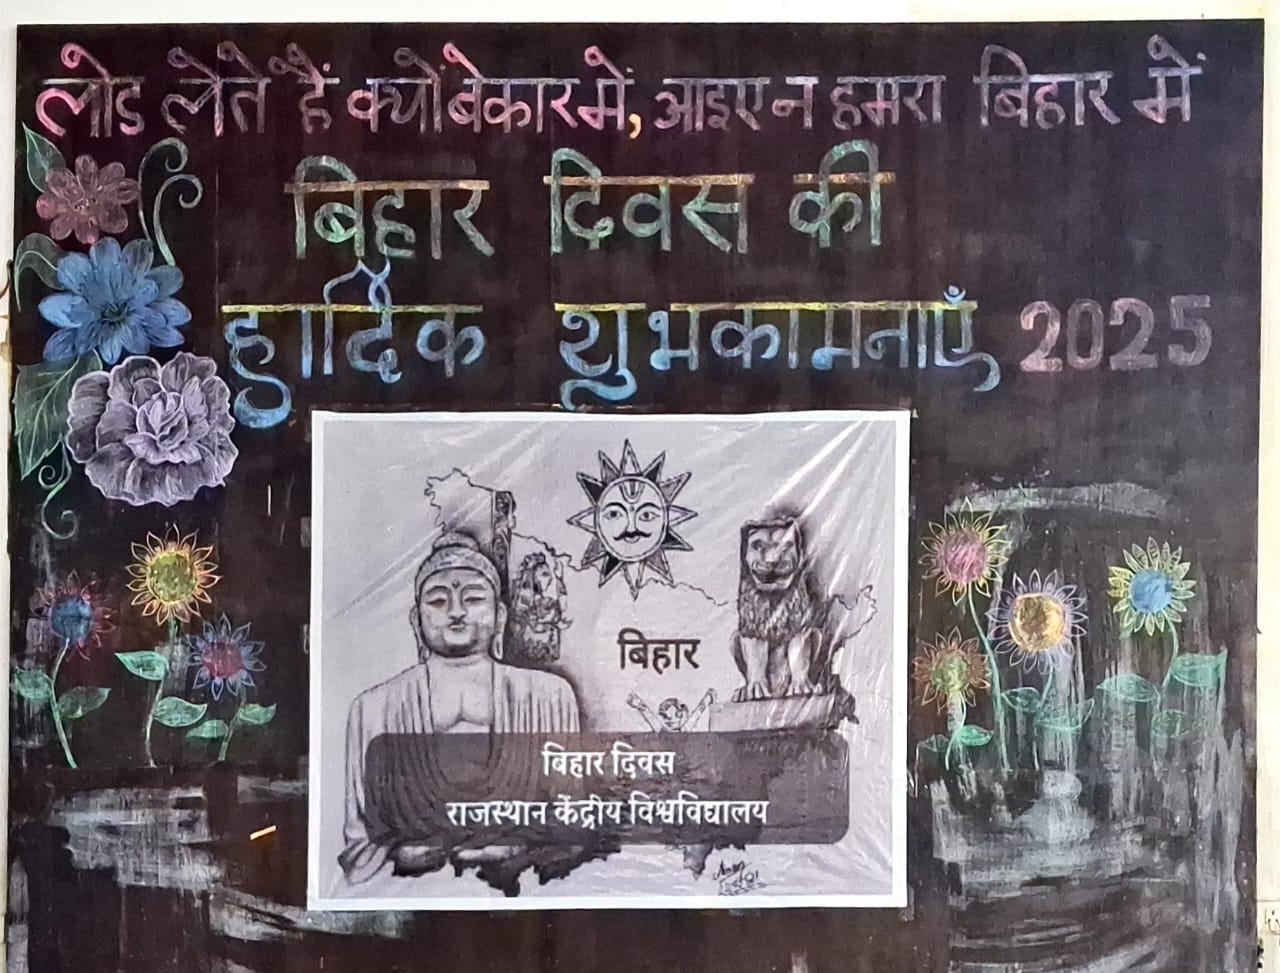 लोड लेते हैं क्यों बेकार में, आइए न हमरा बिहार में
बिहार दिवस की
हार्दिक शुभकामनाएँ 2025
बिहार
बिहार दिवस
राजस्थान केंद्रीय विश्वविद्यालय